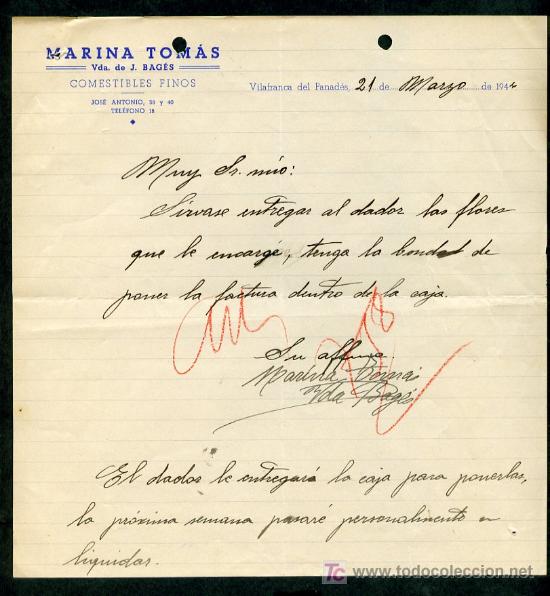 MARINA TOMÁS
Vda. de J. BAGÉS
COMESTIBLES FINOS
JOSÉ ANTONIO, 38 y 40
TELÉFONO 18
Vilafranca del Panadés, 21 de Marzo de 1944
Muy Sr. mio:
Sirvase entregar al dador las flores
que le encargé, tenga la bondad de
poner la factura dentro de la caja.
Su affma.
Marina Tomás
Vda Bagés
El dador le entregará la caja para ponerlas,
la próxima semana pasaré personalmente a
liquidar.
todocoleccion
www.todocoleccion.net